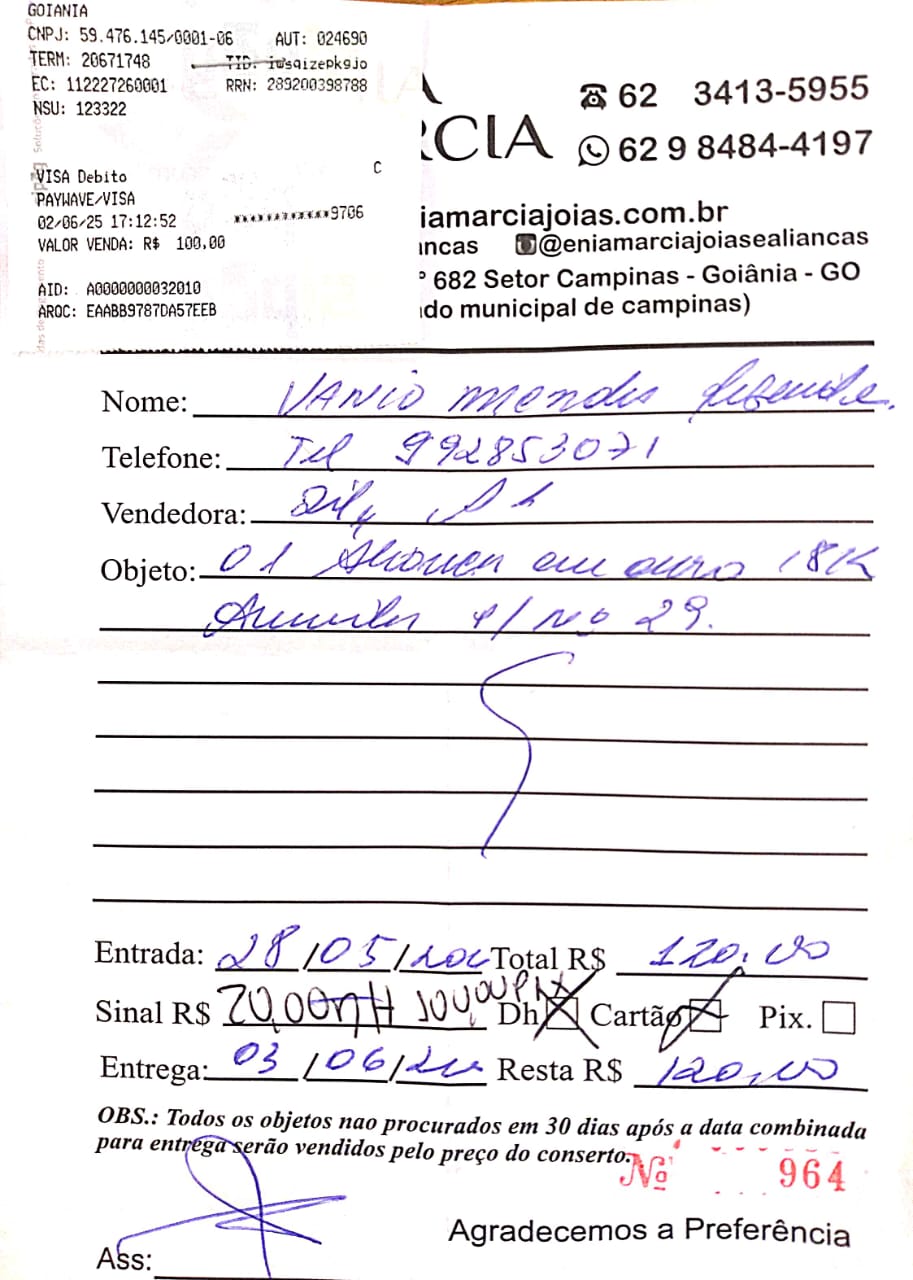 GOIANIA
CNPJ: 59.476.145/0001-06 AUT: 024690
TERM: 20671748 TID: iwsqizepkgjo
EC: 112227260001 RRN: 289200398788
NSU: 123322
VISA Debito C
PAYWAVE/VISA
02/06/25 17:12:52 ************9706
VALOR VENDA: R$ 100,00
AID: A0000000032010
ARQC: EAABB9787DA57EEB
62 3413-5955
RCIA 62 9 8484-4197
iamarciajoias.com.br
ancas @eniamarciajoiasealiancas
° 682 Setor Campinas - Goiânia - GO
do municipal de campinas)
Nome: VANIO Mendes
Telefone: Tel 992853071
Vendedora:
Objeto: 01 em ouro 18K
p/ no 29.
Entrada: 28/05/ Total R$ 120,00
Sinal R$ 20,00 100,00 Dh Cartão Pix.
Entrega: 03/06/ Resta R$ 120,00
OBS.: Todos os objetos nao procurados em 30 dias após a data combinada
para entrega serão vendidos pelo preço do conserto.
Nº 964
Agradecemos a Preferência
Ass: